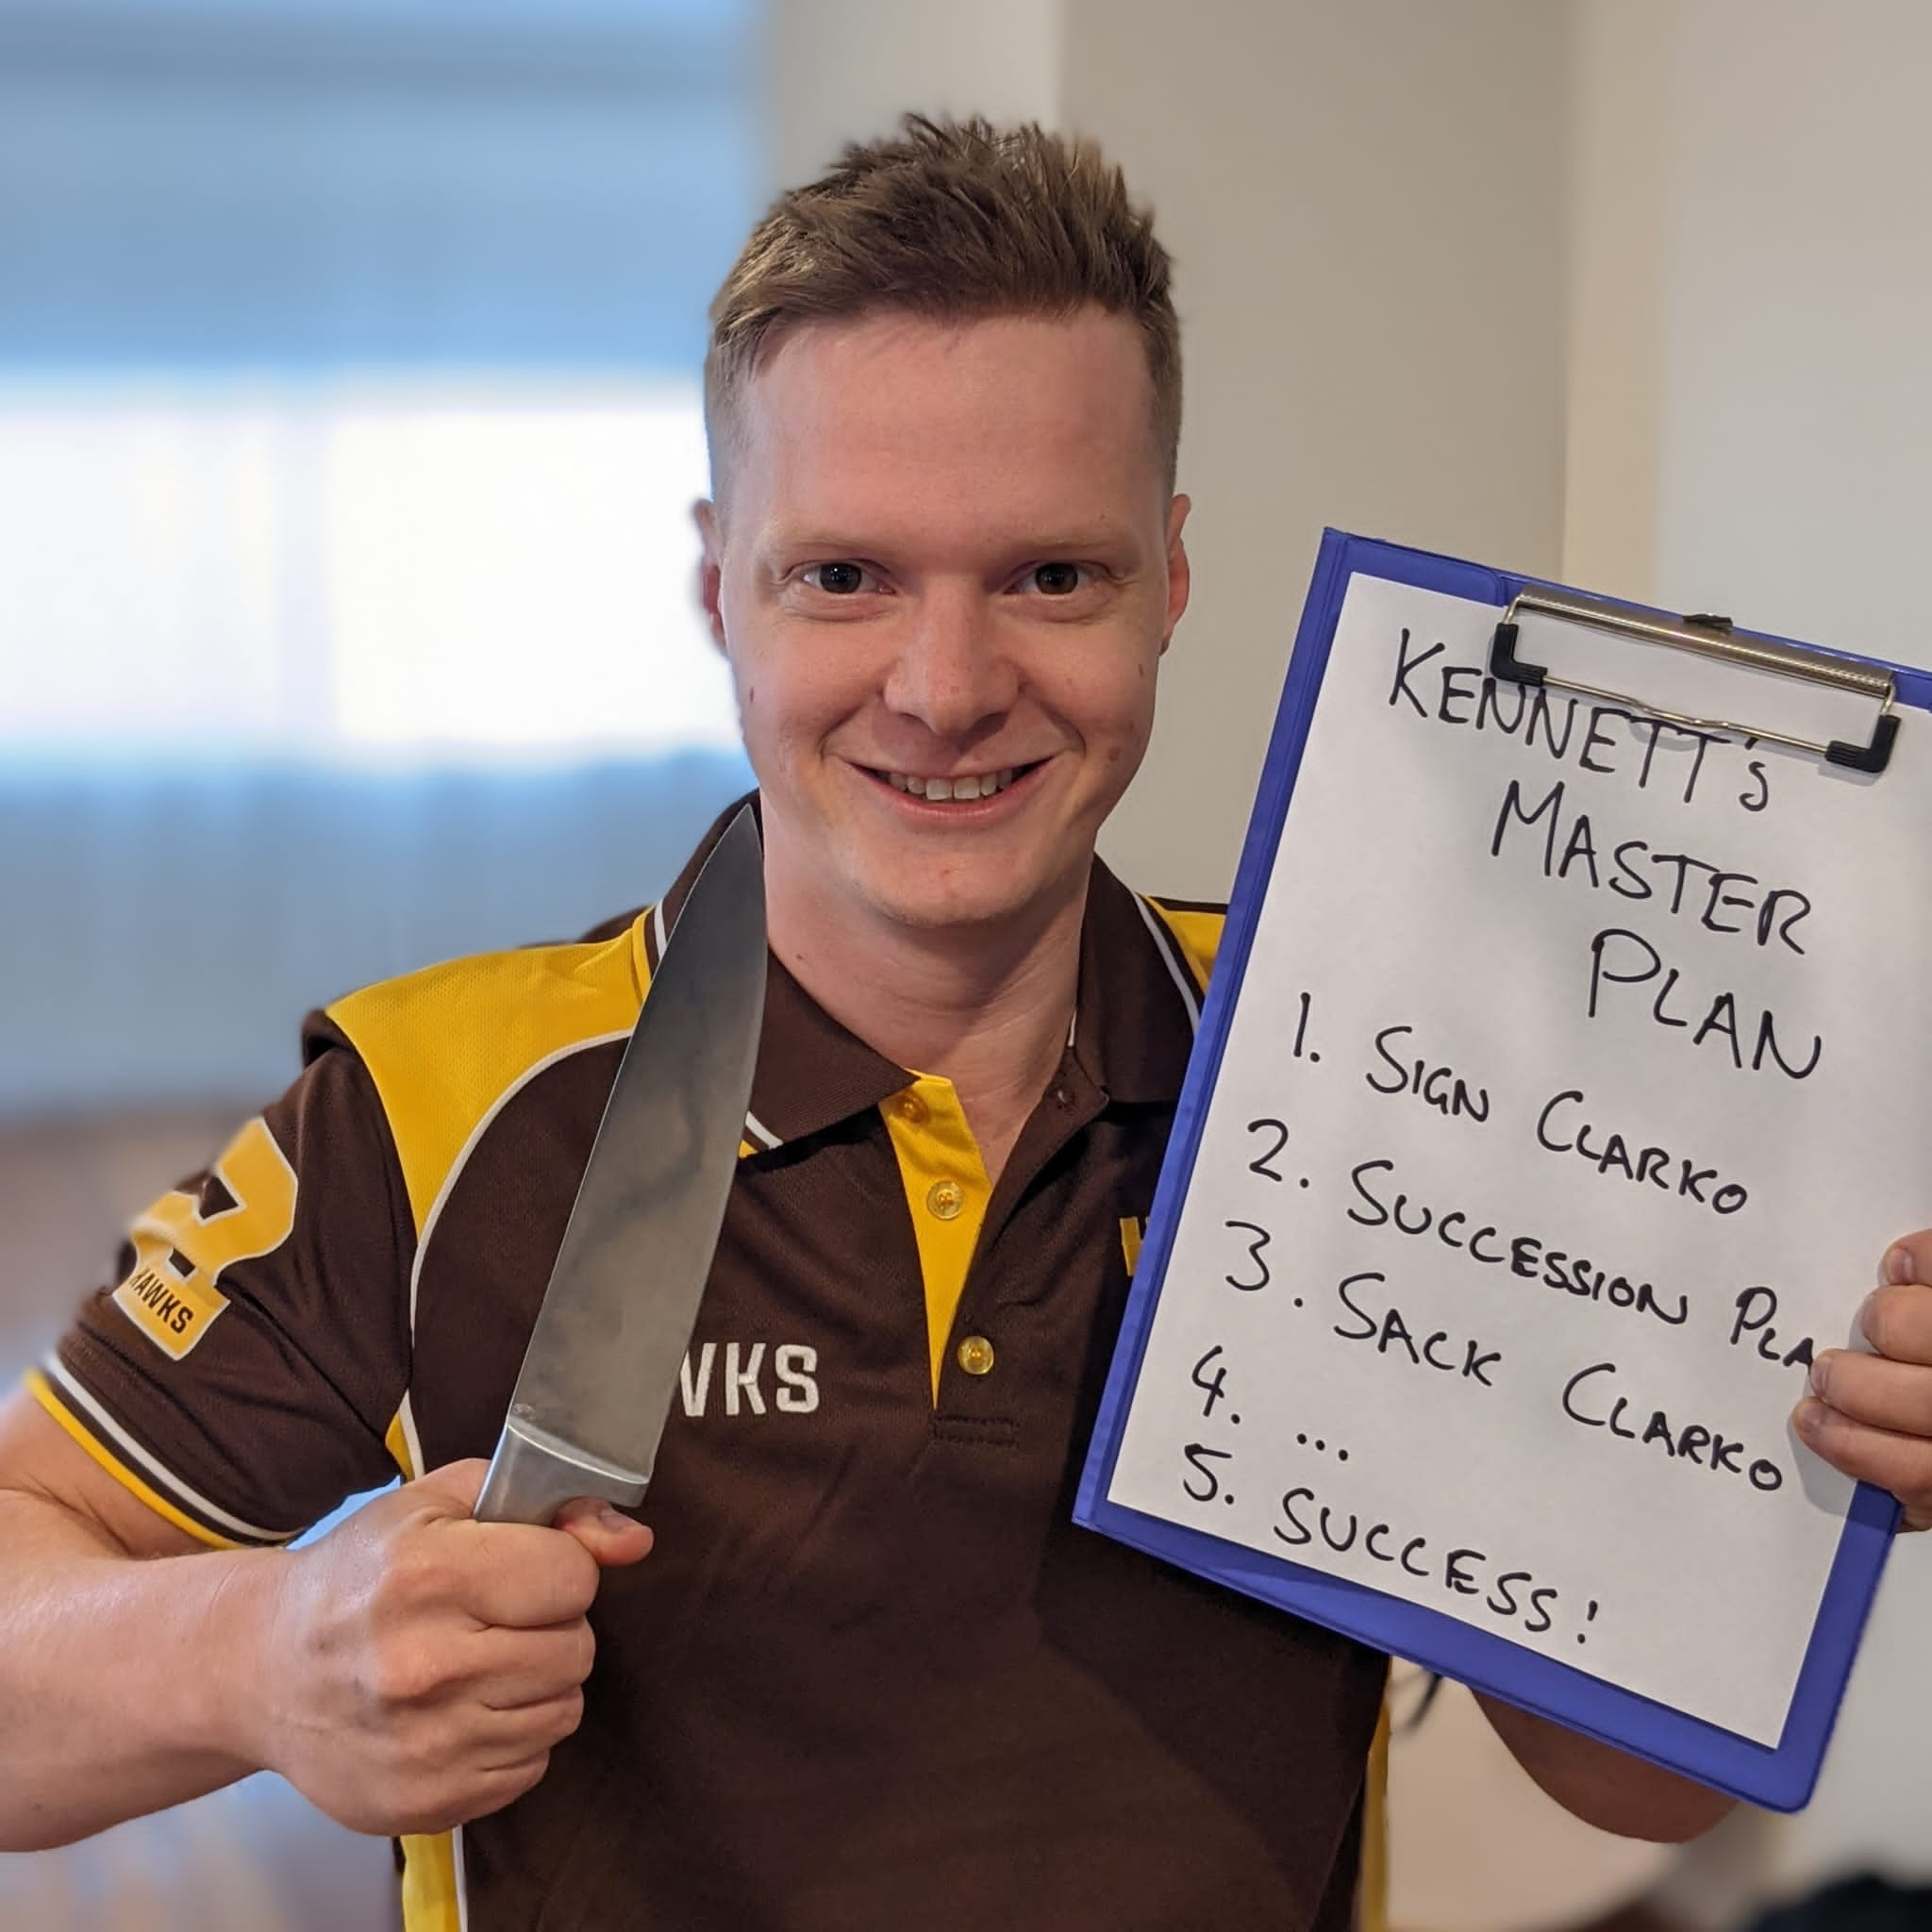 KENNETT's
MASTER
PLAN
1. SIGN CLARKO
2. SUCCESSION PLA
3. SACK CLARKO
4. ...
5. SUCCESS!
HAWKS
WKS